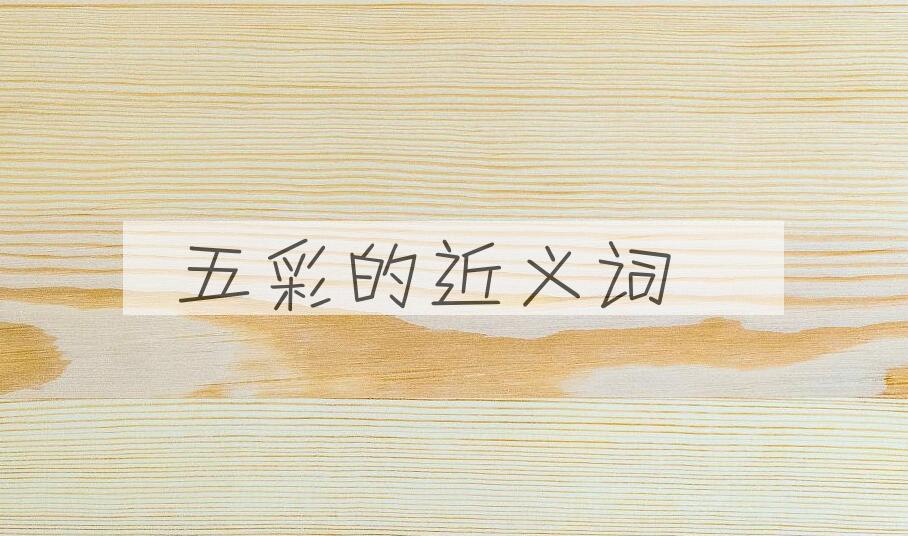 五彩的近义词